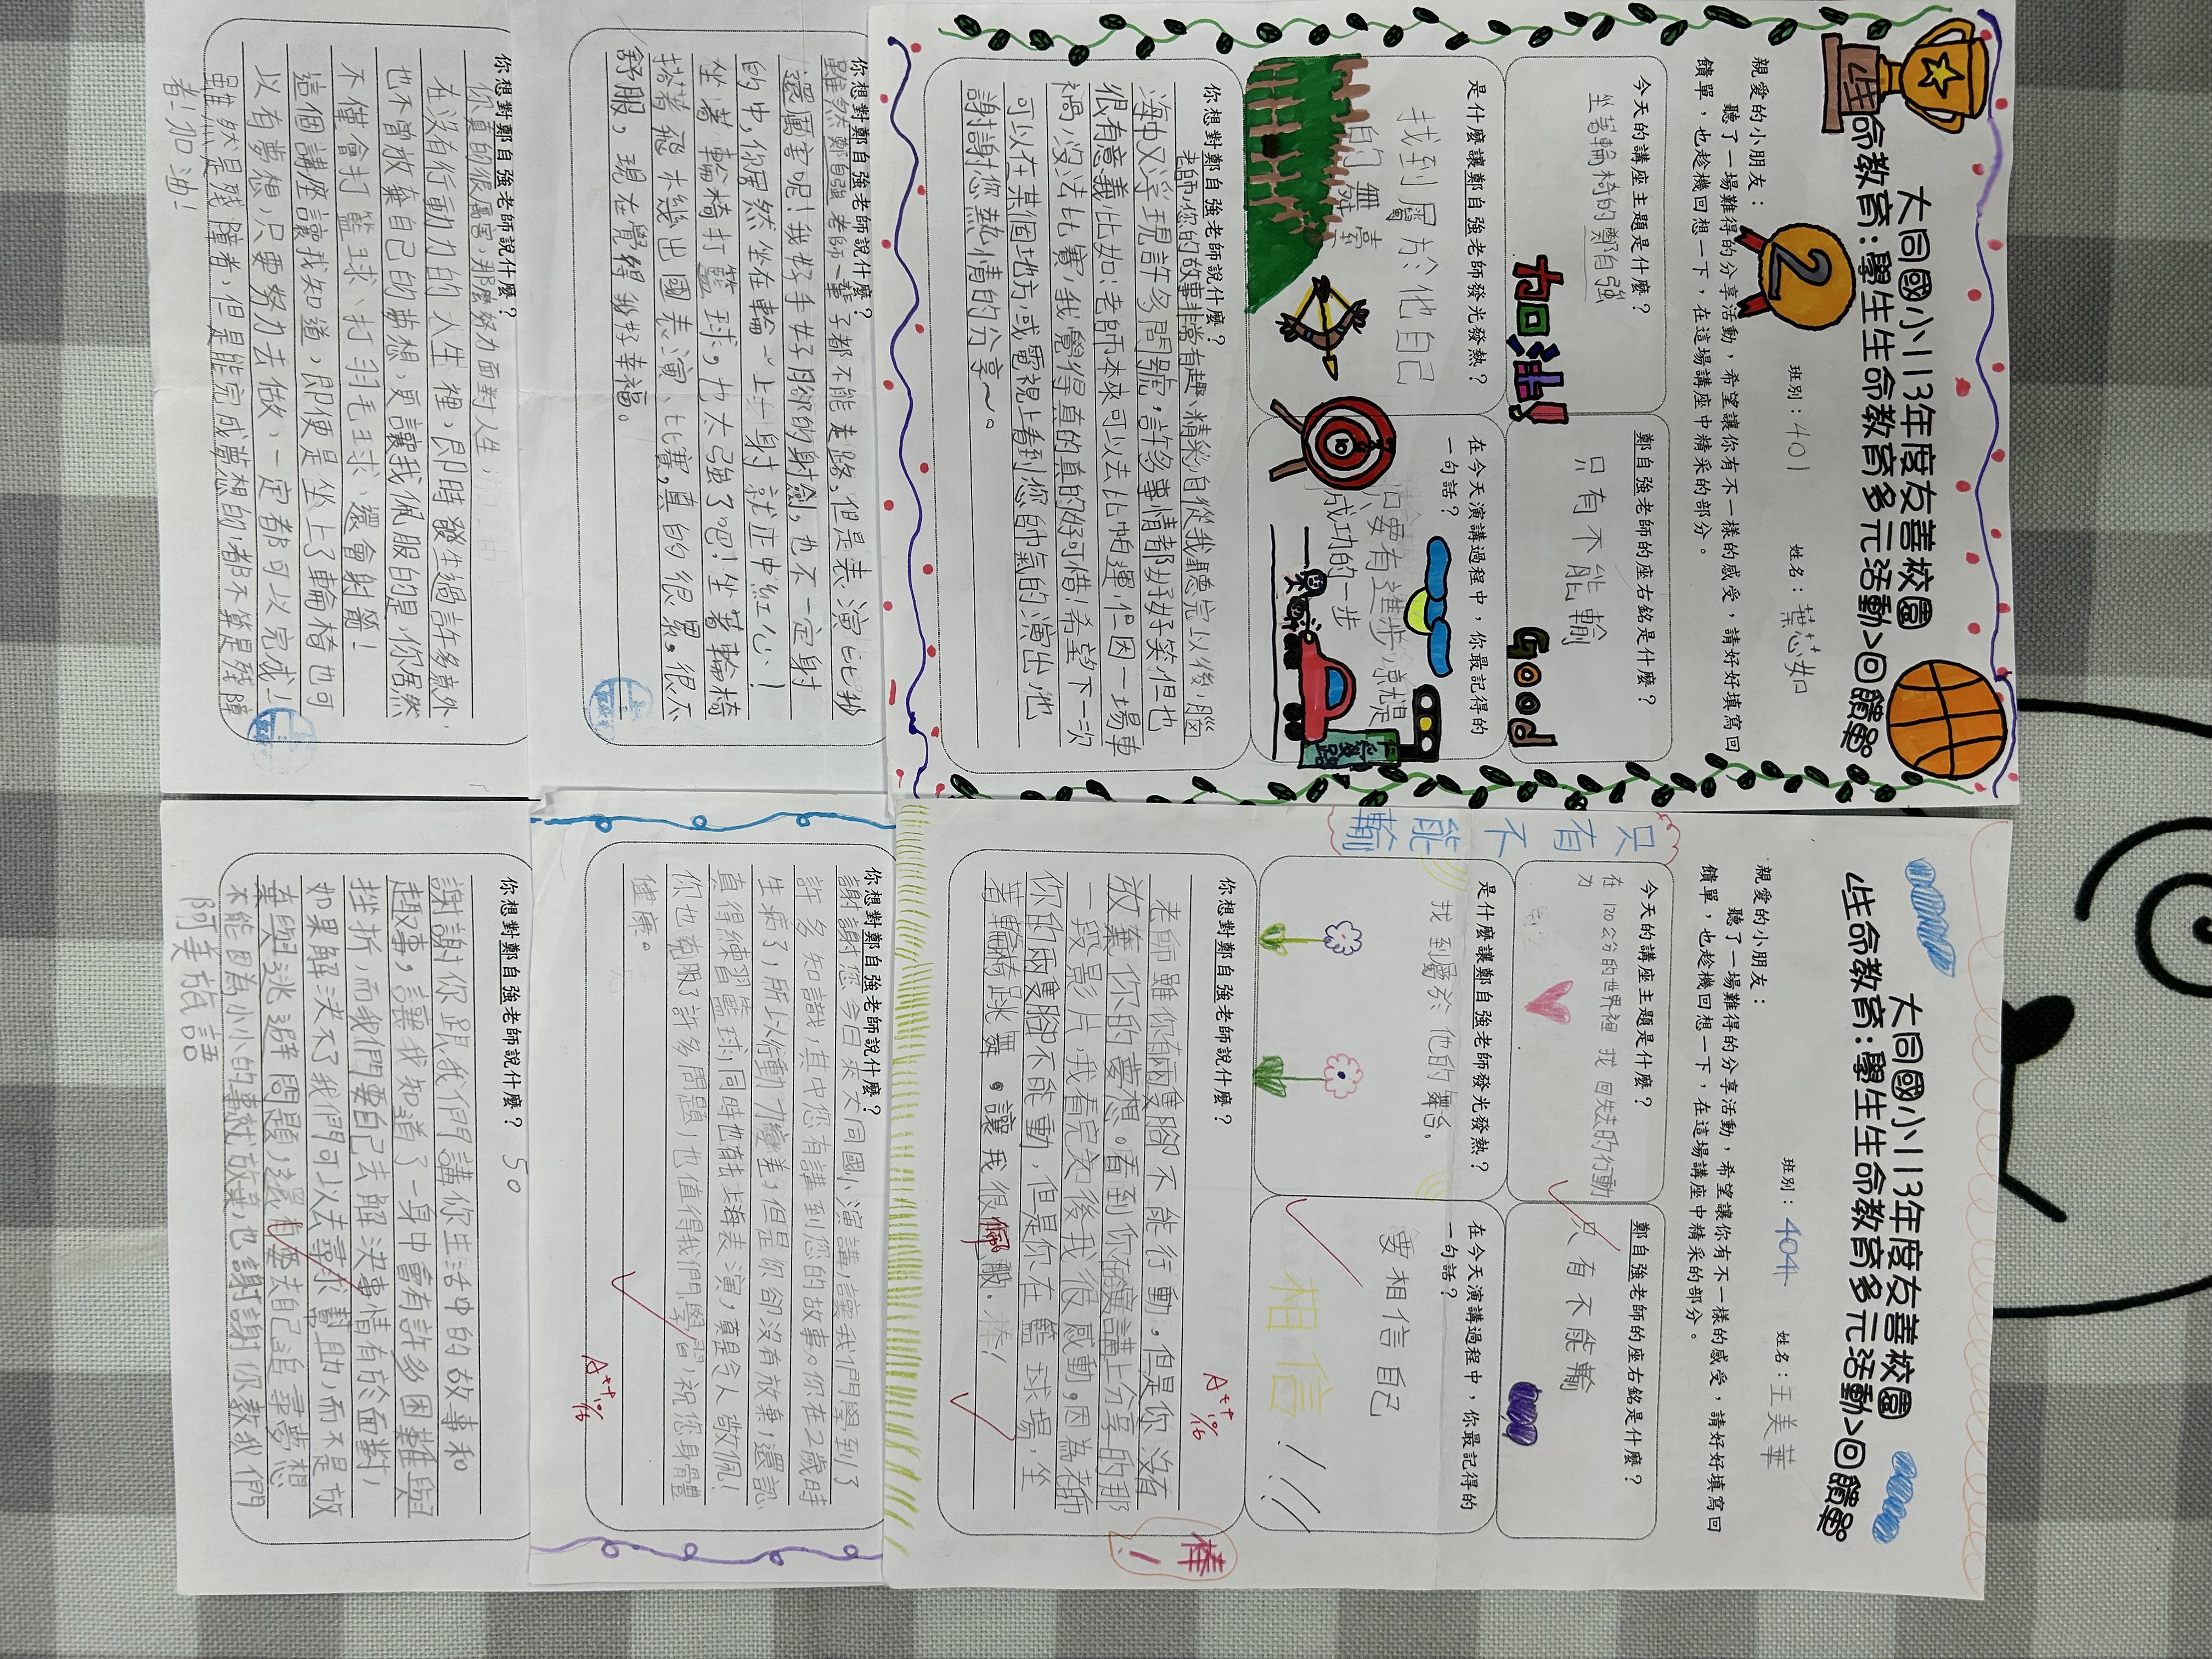 大同國小113年度友善校園
生命教育:學生生命教育多元活動>回饋單
班別:401
姓名:葉芯如
親愛的小朋友:
聽了一場難得的分享活動,希望讓你有不一樣的感受,請好好填寫回
饋單,也趁機回想一下,在這場講座中精采的部分。
今天的講座主題是什麼?
坐著輪椅的鄭自強
加油!
鄭自強老師的座右銘是什麼?
只有不能輸
Good
是什麼讓鄭自強老師發光發熱?
找到屬於他自己
的舞臺
在今天演講過程中,你最記得的
一句話?
只要有進步就是
成功的一步
你想對鄭自強老師說什麼?
老師,你的故事非常有趣、精彩,自從我聽完以後,腦
海中又浮現許多問號,許多事情都好好笑但也
很有意義比如:老師本來可以去比帕運,但因一場車
禍,沒法比賽,我覺得真的真的好可惜!希望下一次
可以在某個地方或電視上看到您的帥氣的演出,也
謝謝您熱情的分享~。
你想對鄭自強老師說什麼?
雖然鄭自強老師一輩子都不能走路,但是表演比我
還厲害呢!我好手好腳的射劍,也不一定身
的中,你居然坐在輪~上一射就正中紅心!
坐著輪椅打籃球,也太強了吧!坐著輪椅
搭著飛機出國表演、比賽,真的很累。很不
舒服,現在覺得夠好幸福。
你想對鄭自強老師說什麼?
你真的很厲害,那麼努力面對人生,
在沒有行動力的人生裡,即時發生過許多意外,
也不曾放棄自己的夢想,更讓我佩服的是,你居然
不僅會打籃球、打羽毛球、還會射箭!
這個講座讓我知道,即便是坐上了輪椅也可
以有夢想,只要努力去做,一定都可以完成!
雖然是殘障者,但是能完成夢想的,都不算是殘障
者!加油!
大同國小113年度友善校園
生命教育:學生生命教育多元活動>回饋單
班別:404
姓名:王美華
親愛的小朋友:
聽了一場難得的分享活動,希望讓你有不一樣的感受,請好好填寫回
饋單,也趁機回想一下,在這場講座中精采的部分。
只有不能輸
今天的講座主題是什麼?
在120公分的世界裡 找回失去的行動
力
鄭自強老師的座右銘是什麼?
只有不能輸
是什麼讓鄭自強老師發光發熱?
找到屬於他的舞台。
在今天演講過程中,你最記得的
一句話?
要相信自己
相信!!!
你想對鄭自強老師說什麼?
A++ 10/16
老師雖你有兩隻腳不能行動,但是你沒有
放棄你的夢想。看到你在演講上分享的那
一段影片,我看完文後我很感動。因為老師
你的兩隻腳不能動,但是你在籃球場,坐
著輪椅跳舞。讓我很佩服,棒!
棒!
你想對鄭自強老師說什麼?
謝謝您今日來大同國小演講,讓我們學到了
許多知識,其中您有講到您的故事。你在2歲時
生病了,所以行動力變差,但是你卻沒有放棄,還認
真得練習籃球,同時也能上海表演,真是令人敬佩!
你也克服了許多問題,也值得我們學習,祝您身體
健康。
A++ 10/16
你想對鄭自強老師說什麼? 50
謝謝你跟我們講你生活中的故事和
趣事,讓我知道了一身中會有許多困難與
挫折,而我們要自己去解決事情有於面對,
如果解決不了我們可以去尋求幫助,而不是放
棄與逃避問題,還有要去自己追尋夢想
不能因為小小的事就放棄,也謝謝你教我們
阿美族語